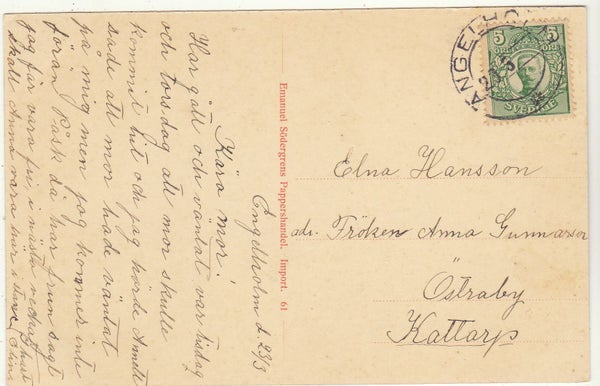 Engelholm d 23/3
Kära mor!
Har gått och väntat var tisdag
och torsdag att mor skulle
kommit hit och jag hörde Anette
sade att mor hade väntat
på mig men jag kommer inte
förän Påsk då har frun sagt
jag får vara fri i nästa vecka
skall Anna vara mor i
Emanuel Södergrens Pappershandel. Import. 61
ÄNGELHOLM
23 3
5 5
ÖRE ÖRE
SVERIGE
Elna Hansson
adr. Fröken Anna Gunnarson
Östraby
Kattarp